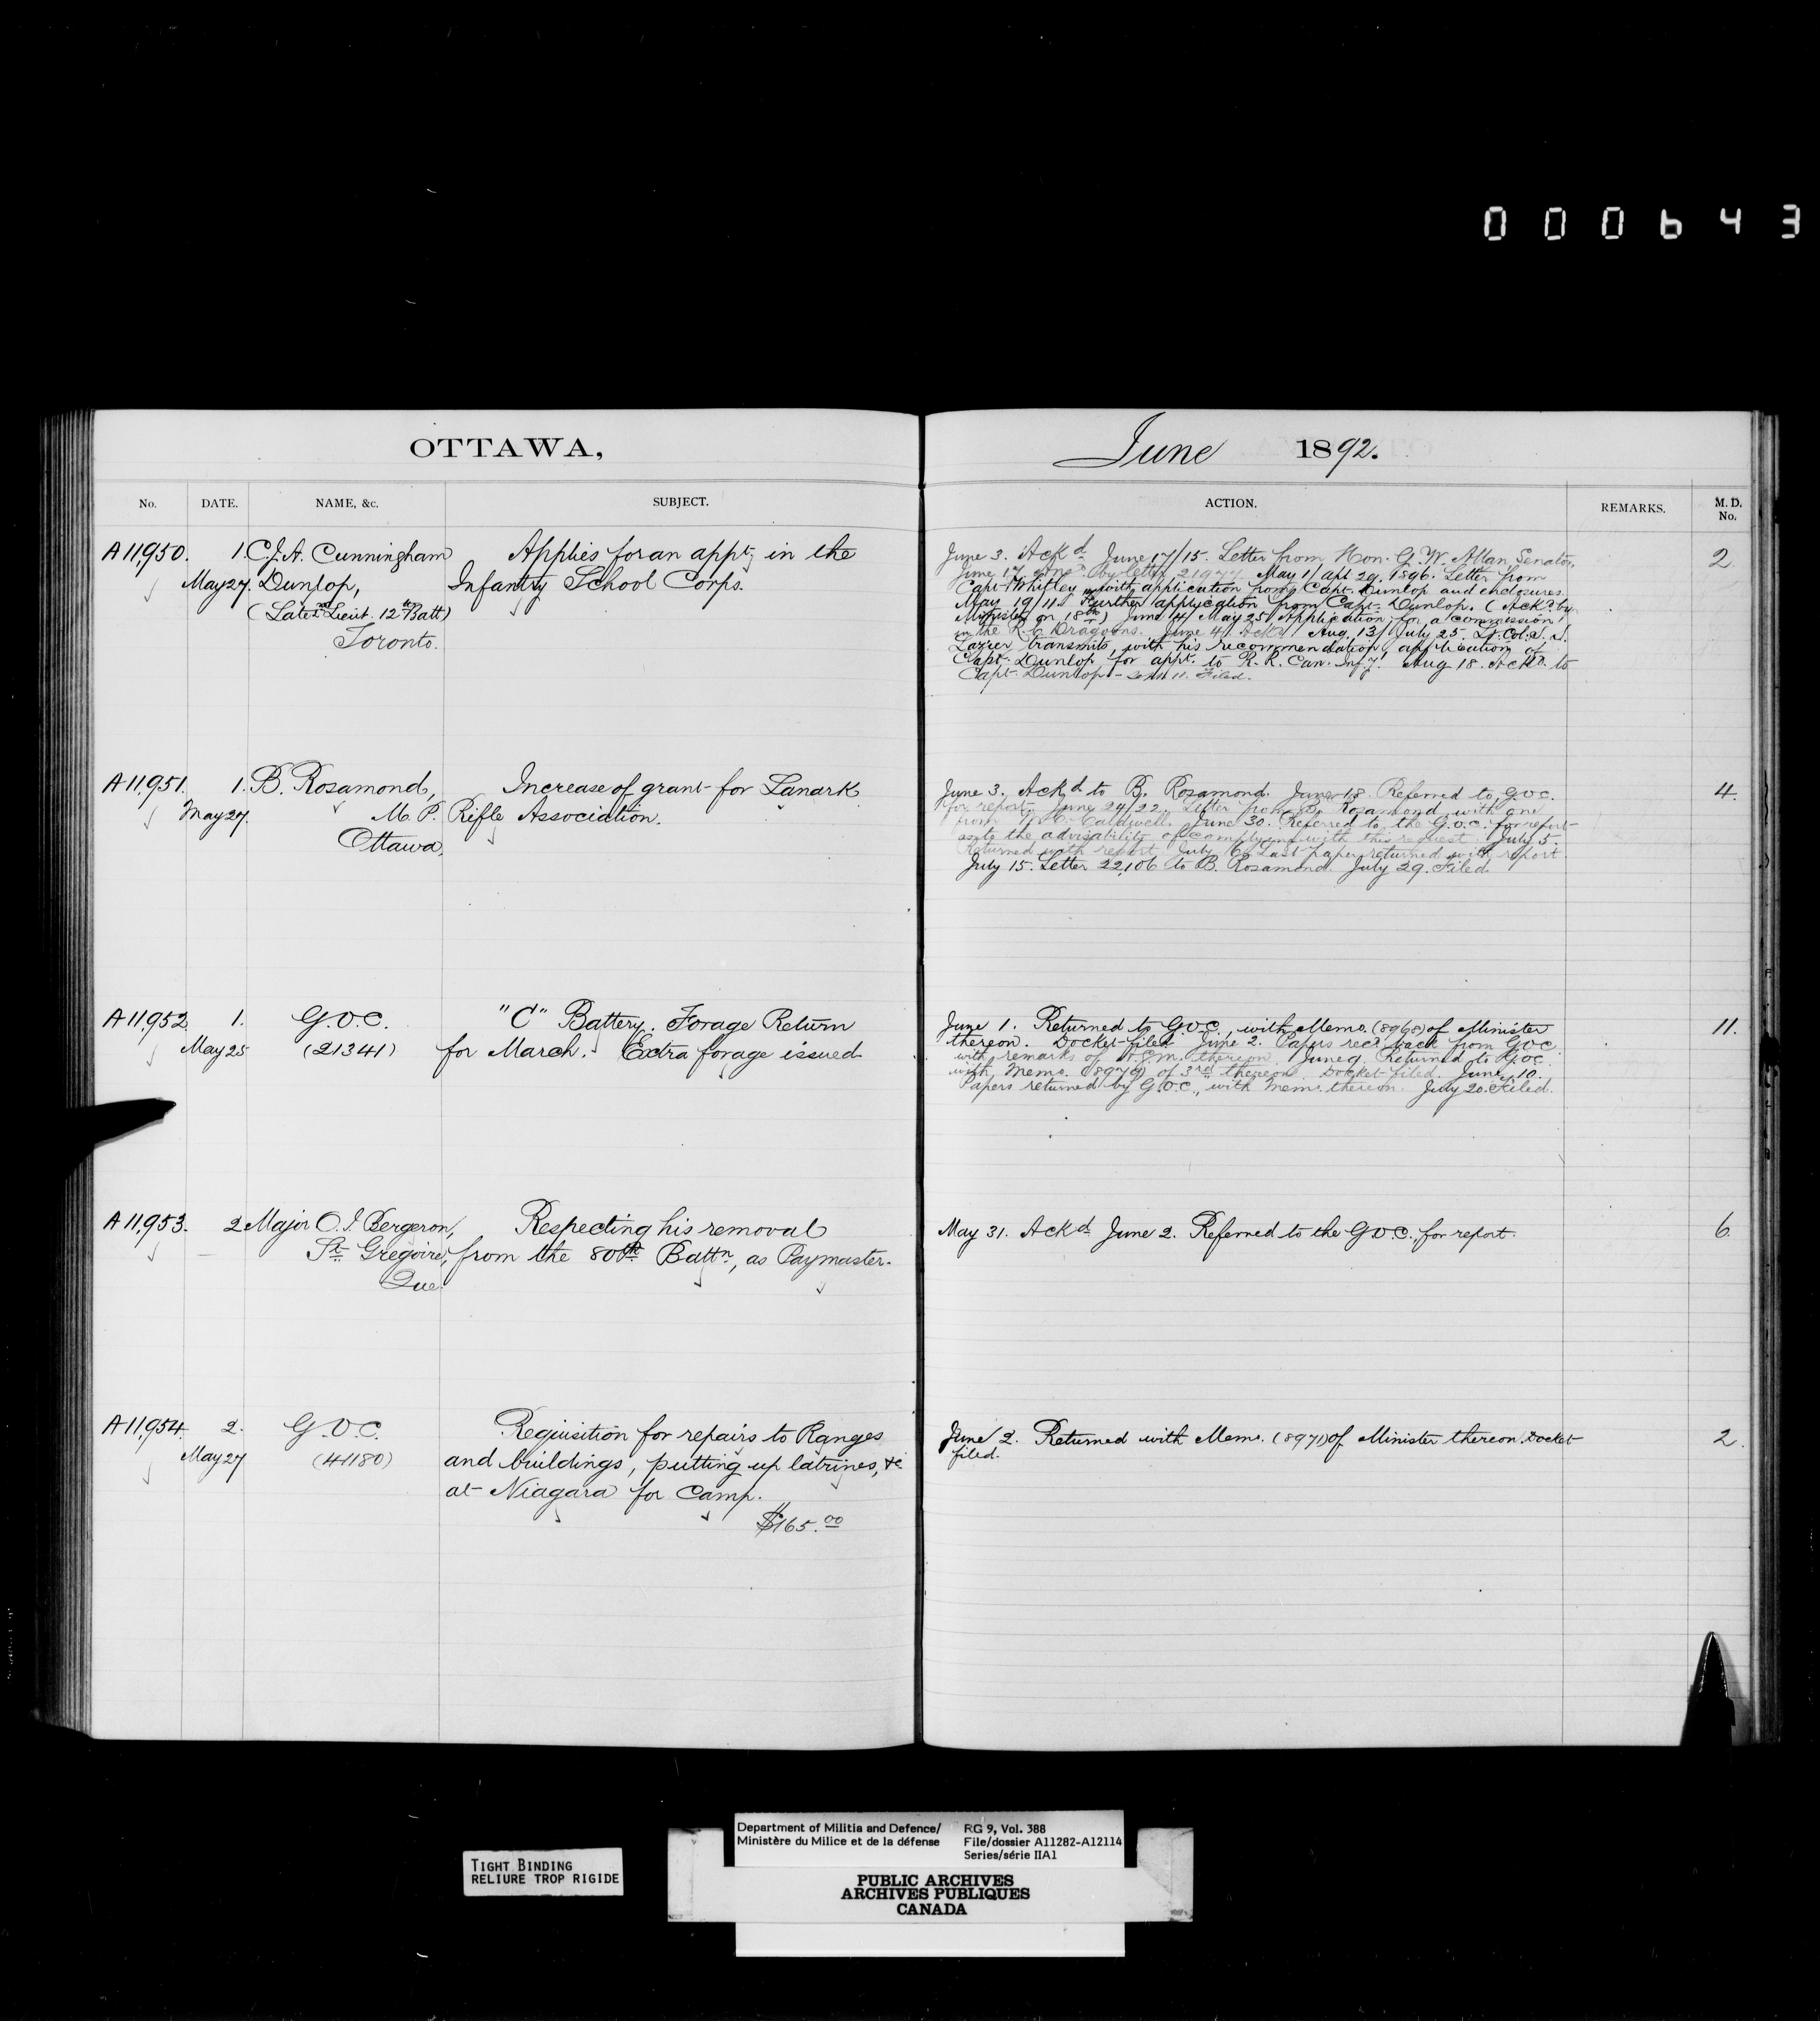 000643
OTTAWA,
June 1892.
No. DATE. NAME, &c. SUBJECT.
ACTION. REMARKS. M. D. No.
A 11,950. 1. C.J.A. Cunningham Applies for an appt. in the
May 27. Dunlop, Infantry School Corps.
(Late 2nd Lieut. 12th Batt)
Toronto.
June 3. Ackd. June 17/15. Letter from Hon. G. W. Allan, Senator, 2
June 17 by letter May 1/ Apl 29. 1896. Letter from
Capt. Whitley with application from Capt. Dunlop and enclosures.
May 19/11. Further application from Capt. Dunlop. (Ackd. by
Minister on 18th) June 4/ May 25. Application for a commission
in the R. C. Dragoons. June 4. Ackd. Aug. 13/ July 25. Lt. Col. S. S.
Lazier transmits, with his recommendation, application of
Capt. Dunlop, for appt. to R. R. Can. Infy. Aug 18. Ackd. to
Capt. Dunlop - Filed.
A 11,951. 1. B. Rosamond, Increase of grant for Lanark
May 27. M. P. Rifle Association.
Ottawa.
June 3. Ackd to B. Rosamond. June 18. Referred to G.O.C. 4.
for report. June 24/22. Letter from B. Rosamond, with one
from Caldwell. June 30. Referred to the G.O.C. for report
as to the advisability of complying with this request. July 5.
Returned with report. July 6. Last paper returned with report.
July 15. Letter 22,106 to B. Rosamond. July 29. Filed.
A 11,952. 1. G.O.C. "C" Battery. Forage Return
May 25 (21341) for March. - Extra forage issued
June 1. Returned to G.O.C., with Memo. (8968) of Minister 11.
thereon. Docket filed June 2. Papers recd. back from G.O.C.
with remarks of thereon. June 9. Returned to G.O.C.
with Memo. (8979) of 3rd thereon. Docket filed. June 10.
Papers returned by G.O.C., with Memo. thereon. July 20. Filed.
A 11,953. 2 Major O. I. Bergeron, Respecting his removal
St. Gregoire, from the 80th Battn, as Paymaster.
Que.
May 31. Ackd June 2. Referred to the G.O.C. for report. 6.
A 11,954. 2. G.O.C. Requisition for repairs to Ranges
May 27 (41180) and buildings, putting up latrines, &c
at Niagara for Camp.
$165.00
June 2. Returned with Memo. (8971) of Minister thereon. Docket 2.
filed.
Department of Militia and Defence/ RG 9, Vol. 388
Ministère du Milice et de la défense File/dossier A11282-A12114
Series/série IIA1
TIGHT BINDING
RELIURE TROP RIGIDE
PUBLIC ARCHIVES
ARCHIVES PUBLIQUES
CANADA